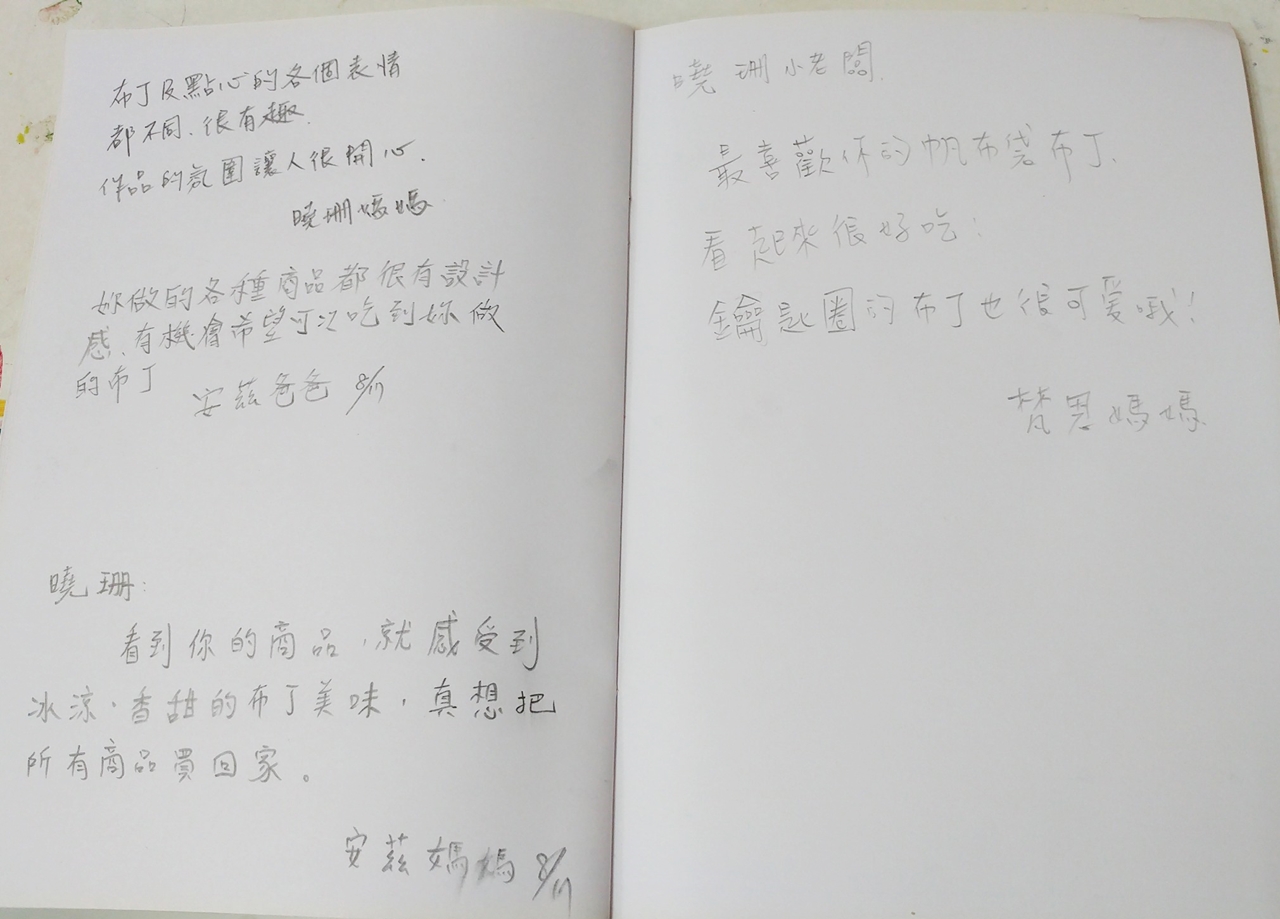 布丁及點心的各個表情
都不同、很有趣.
作品的氛圍讓人很開心.
曉珊媽媽.
妳做的各種商品都很有設計
感、有機會希望可以吃到妳做
的布丁
安茲爸爸 8/17
曉珊:
看到你的商品,就感受到
冰涼、香甜的布丁美味,真想把
所有商品買回家。
安茲媽媽 8/17
曉珊小老闆.
最喜歡你的帆布袋布丁、
看起來很好吃:
鑰匙圈的布丁也很可愛哦!
梵恩媽媽